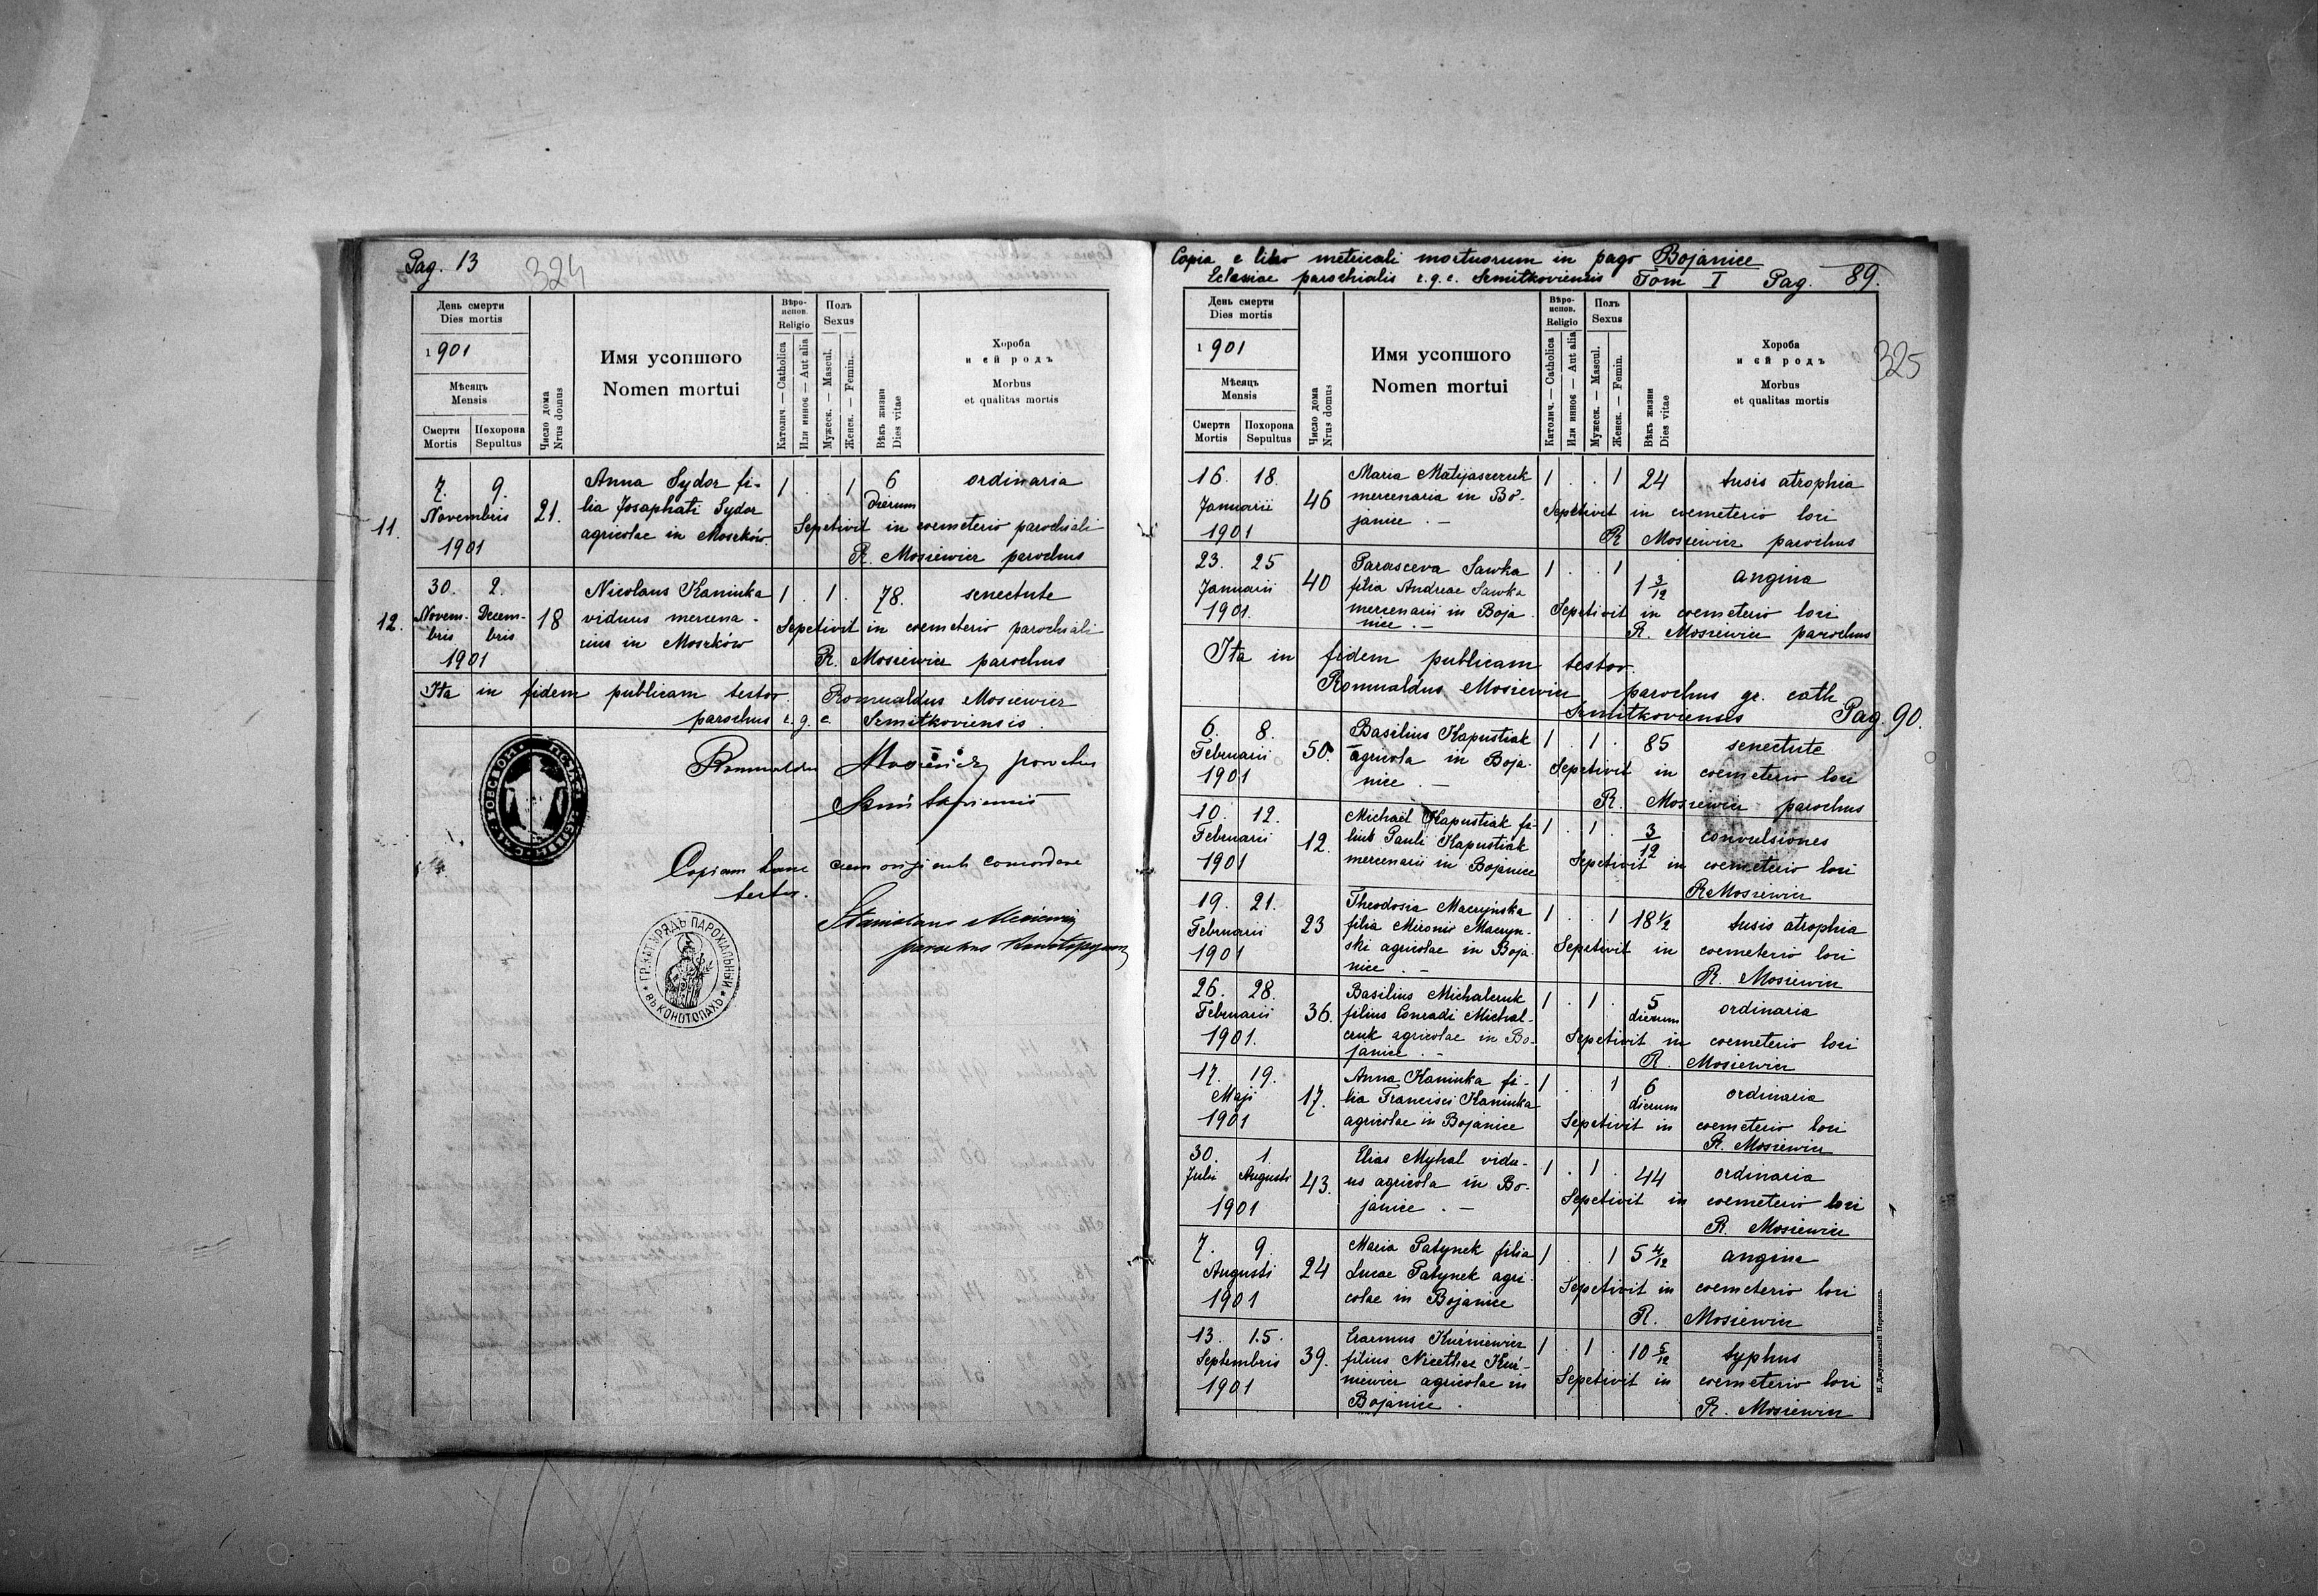 Pag. 13
324
День смерти
Dies mortis
1901
Мѣсяцъ
Mensis
Смерти
Mortis
Похорона
Sepultus
Число дома
Nrus domus
Имя усопшого
Nomen mortui
Вѣро-
испов.
Religio
Католич. — Catholica
Или иное — Aut alia
Полъ
Sexus
Мужеск. — Mascul.
Женск. — Femin.
Вѣкъ жизни
Dies vitae
Хороба
и ей родъ
Morbus
et qualitas mortis
11.
7. 9.
Novembris
1901
21.
Anna Sydor fi-
lia Josaphati Sydor
agricolae in Moszków.
1 . . 1
6
dierum
ordinaria
Sepelivit in coemeterio parochiali
R. Mosiewicz parochus
12.
30. 2.
Novem- Decem-
bris bris
1901
18
Nicolaus Kaminka
viduus mercena-
rius in Moszków
1 . 1 .
78.
senectute
Sepelivit in coemeterio parochiali
R. Mosiewicz parochus
Ita in fidem publicam testor. Romualdus Mosiewicz
parochus r. g. c. Semitkoviensis.
Romualdus Mosiewicz parochus
Semitkoviensis
Copiam hanc cum originali concordare
testor.
Stanislaus Mosiewicz
parochus
ГР. КАТ. УРЯДЪ ПАРОХІАЛЬНЫЙ
ВЪ КОНОТОПАХЪ
Copia e libro metricali mortuorum in pago Bojanice
Eclesiae parochialis r. g. c. Semitkoviensis Tom I Pag. 89.
325
День смерти
Dies mortis
1901
Мѣсяцъ
Mensis
Смерти
Mortis
Похорона
Sepultus
Число дома
Nrus domus
Имя усопшого
Nomen mortui
Вѣро-
испов.
Religio
Католич. — Catholica
Или иное — Aut alia
Полъ
Sexus
Мужеск. — Mascul.
Женск. — Femin.
Вѣкъ жизни
Dies vitae
Хороба
и ей родъ
Morbus
et qualitas mortis
16. 18.
Januarii
1901
46
Maria Matijaszczuk
mercenaria in Bo-
janice . —
1 . . 1
24
tusis atrophia
Sepelivit in coemeterio loci
R Mosiewicz parochus
23. 25
Januarii
1901.
40
Parasceva Sawka
filia Andreae Sawka
mercenarii in Boja
nice . —
1 . . 1
1 3/12
angina
Sepelivit in coemeterio loci
R. Mosiewicz parochus
Ita in fidem publicam testor.
Romualdus Mosiewicz parochus gr. cath
Semitkoviensis
Pag. 90.
6. 8.
Februarii
1901
50.
Basilius Kapustiak
agricola in Boja-
nice . —
1 . 1 .
85
senectute
Sepelivit in coemeterio loci
R. Mosiewicz parochus
10. 12.
Februarii
1901
12.
Michaël Kapustiak fi-
lius Pauli Kapustiak
mercenarii in Bojanice
1 . 1 .
3/12
convulsiones
Sepelivit in coemeterio loci
R Mosiewicz
19. 21.
Februarii
1901
23
Theodosia Maczyńska
filia Mironis Maczyn-
ski agricolae in Boja-
nice . —
1 . . 1
18 1/2
tusis atrophia
Sepelivit in coemeterio loci
R. Mosiewicz
26. 28.
Februarii
1901.
36.
Basilius Michalczuk
filius Conradi Michal-
czuk agricolae in Bo-
janice . —
1 . 1 .
5
dierum
ordinaria
Sepelivit in coemeterio loci
R. Mosiewicz
17. 19.
Maji
1901
17.
Anna Kaminka fi-
lia Francisci Kaminka
agricolae in Bojanice
1 . . 1
6
dierum
ordinaria
Sepelivit in coemeterio loci
R. Mosiewicz
30. 1.
Julii Augusti
1901
43.
Elias Myhal vidu-
us agricola in Bo-
janice . —
1 . 1 .
44
ordinaria
Sepelivit in coemeterio loci
R. Mosiewicz
7. 9.
Augusti
1901
24
Maria Patynek filia
Lucae Patynek agri-
colae in Bojanice
1 . . 1
5 4/12
angina
Sepelivit in coemeterio loci
R. Mosiewicz
13. 15.
Septembris
1901
39.
Erasmus Kuśniewicz
filius Nicethae Kuś-
niewicz agricolae in
Bojanice .
1 . 1 .
10 5/12
typhus
Sepelivit in coemeterio loci
R. Mosiewicz